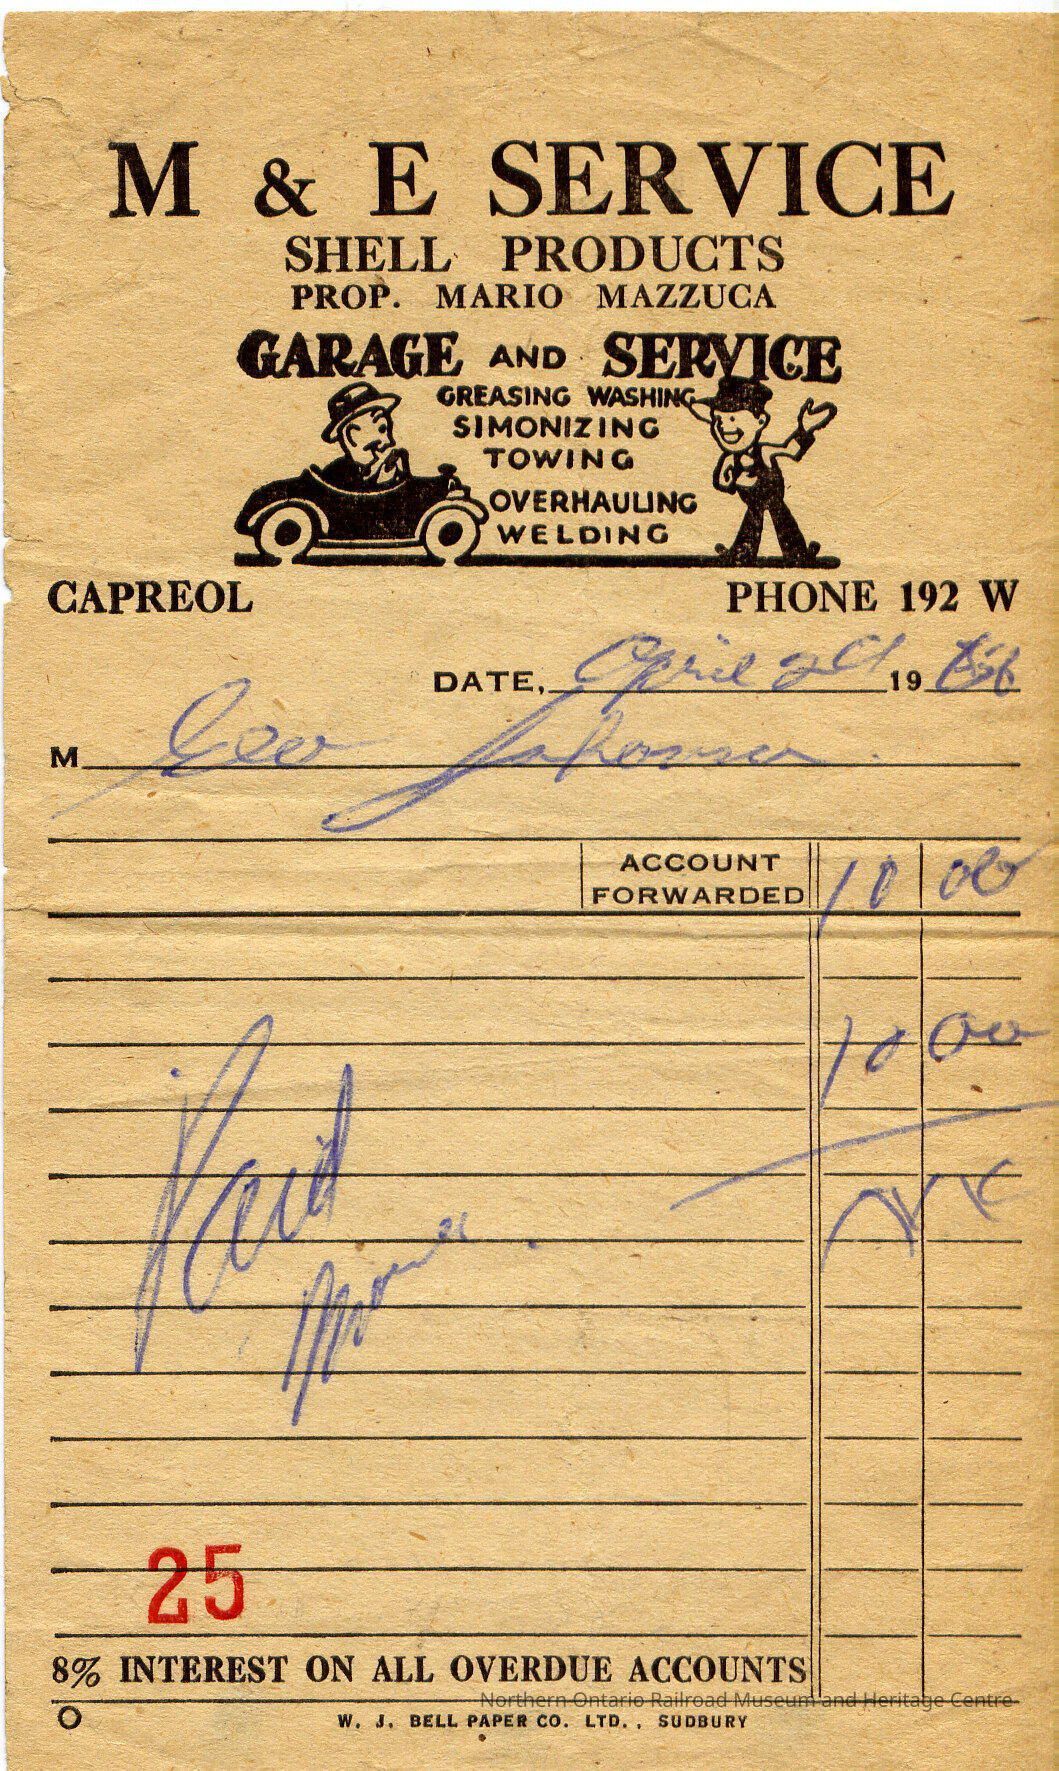 M & E SERVICE
SHELL PRODUCTS
PROP. MARIO MAZZUCA
GARAGE AND SERVICE
GREASING WASHING
SIMONIZING
TOWING
OVERHAULING
WELDING
CAPREOL PHONE 192 W
DATE, April 19
M Geo
ACCOUNT FORWARDED 10 00
10 00
Paid
25
8% INTEREST ON ALL OVERDUE ACCOUNTS
Northern Ontario Railroad Museum and Heritage Centre
W. J. BELL PAPER CO. LTD., SUDBURY